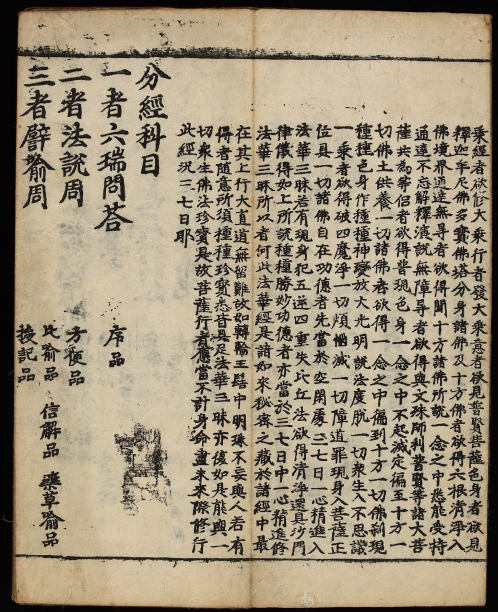 乘經者欲修大乘行者發大乘意者欲見普賢菩薩色身者欲見
釋迦牟尼佛多寶佛塔分身諸佛及十方佛者欲得六根清淨入
佛境界通達無㝵者欲得聞十方諸佛所説一念之中悉能受持
通達不忘解釋演説無障㝵者欲得與文殊師利普賢等諸大菩
薩共為等侣者欲得普現色身一念之中不起滅定徧至十方一
切佛土供養一切諸佛者欲得一念之中徧到十方一切佛刹現
種種色身作種種神變放大光明説法度脱一切衆生入不思議
一乘者欲得破四魔淨一切煩惱滅一切障道罪現身入菩薩正
位具一切諸佛自在功德者先當於空閑處三七日一心精進入
法華三昧若有現身犯五逆四重失比丘法欲得清淨還具沙門
律儀得如上所説種種勝妙功德者亦當於三七日中一心精進修
法華三昧所以者何此法華經是諸如來秘密之藏於諸經中最
在其上行大直道無留難故如轉輪王髻中明珠不妄與人若有
得者隨意所須種種珍寶悉皆具足法華三昧亦復如是能與一
切衆生佛法珍寶是故菩薩行者應當不計身命盡未來際修行
此經況三七日耶
分經科目
一者六瑞問荅 序品
二者法説周 方便品
三者譬喻周 比喻品 信解品 藥草喻品
授記品